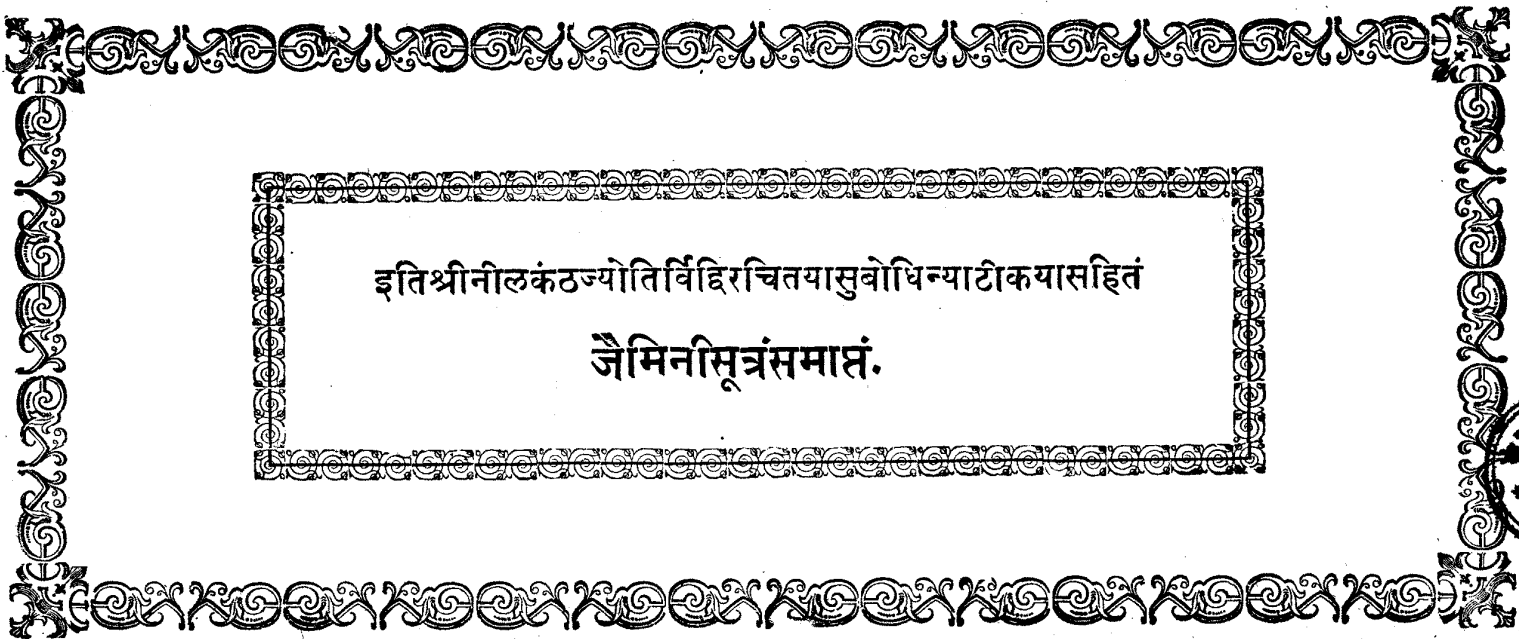 इतिश्रीनीलकंठज्योतिर्विद्विरचितयासुबोधिन्याटीकयासहितं
जैमिनीसूत्रंसमाप्तं.